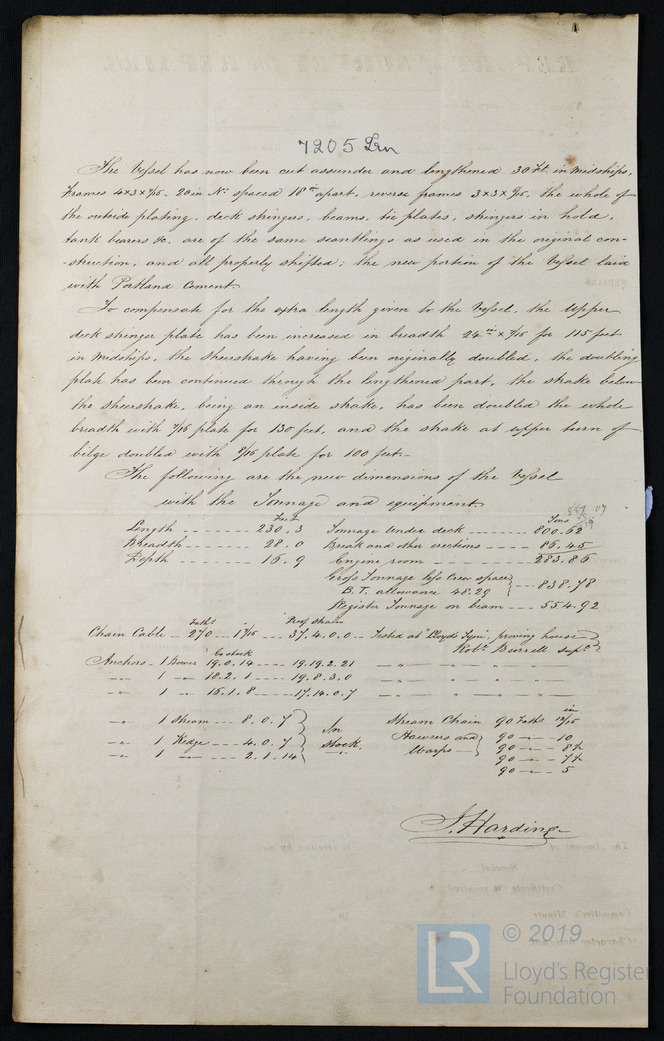 7205 Iron
The Vessel has now been cut assunder and lengthened 30 Ft. in midships,
Frames 4x3x7/16 - 20 in No. spaced 18 in apart, reverse frames 3x3x6/16, the whole of
the outside plating, deck stringers, beams, tie plates, stringers in hold,
tank bearers &c. are of the same scantlings as used in the original con-
-struction, and all properly shifted; the new portion of the Vessel laid
with Portland Cement
To compensate for the extra length given to the Vessel, the Upper
deck stringer plate has been increased in breadth 24 in x 7/16 for 115 feet
in midships, the sheerstrake having been originally doubled, the doubling
plate has been continued through the lengthened part, the strake below
the sheerstrake, being an inside strake, has been doubled the whole
breadth with 7/16 plate for 130 feet, and the strake at upper turn of
bilge doubled with 9/16 plate for 100 feet -
The following are the new dimensions of the Vessel
with the Tonnage and equipment
Feet Tons
Length ------- 230.3 Tonnage Under deck ------- 800.62
Breadth ------- 28.0 Break and other erections ---- 86.45
Depth ------- 16.9 Engine room ------- 283.86
Gross Tonnage less Crew space
B.T. allowance 48.29 } -- 838.78
Register Tonnage on beam ---- 554.92
Faths Proof Strain
Chain Cable -- 270 -- 1 9/16 --- 37.4.0.0 -- Tested at "Lloyd's Tyne", proving house
Robt. Burrell Supt.
Ex stock
Anchors - 1 Bower 19.0.14 ---- 19.19.2.21 -- " -- " -- " --
-"- 1 -"- 18.2.1 ---- 19.8.3.0 -- " -- " -- " --
-"- 1 -"- 16.1.8 ---- 17.14.0.7 -- " -- " -- " --
in
-"- 1 Stream --- 8.0.7 } In Stream Chain 90 Faths 15/16
-"- 1 Kedge --- 4.0.7 } stock. Hawsers and } 90 -"- 10
-"- 1 -"- --- 2.1.14 } Warps 90 -"- 8½
90 -"- 7½
90 -"- 5
J. Harding
© 2019
LR
Lloyd's Register
Foundation